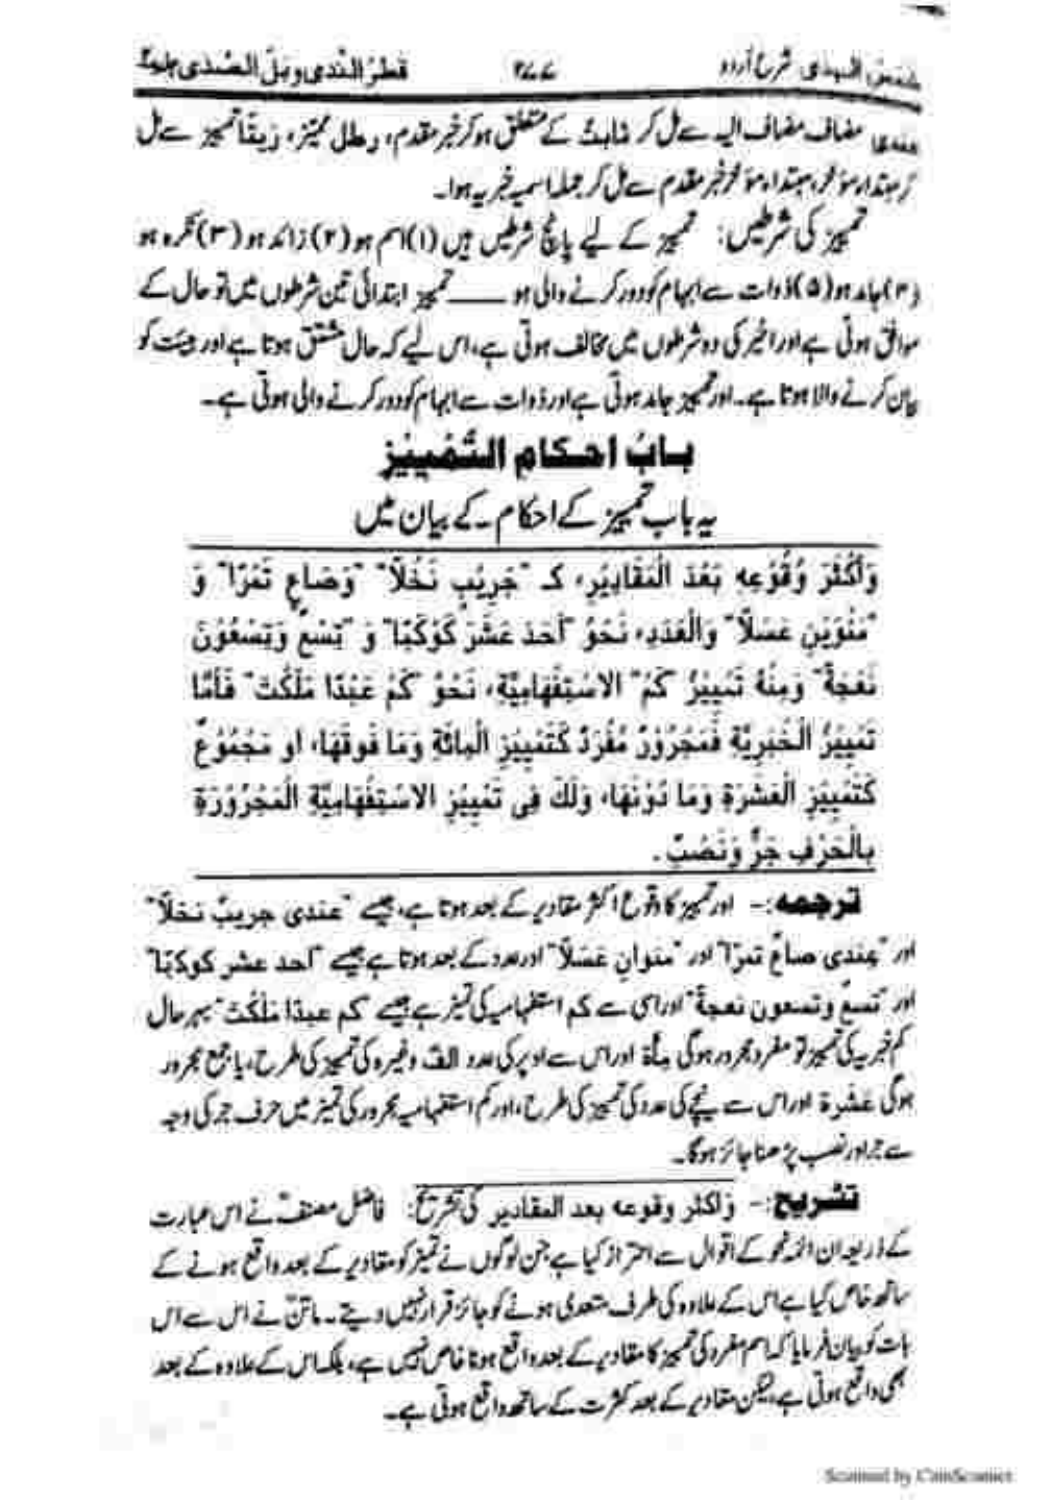 شرح اردو ۲۷۷ قطرُ النّدى وبَلّ الصّدى جلد۲
عندی مضاف مضاف الیہ سے مل کر ثابتٌ کے متعلق ہوکر خبر مقدم، رطل ممیّز، زیتًا تمییز سے مل
کر مبتداء مؤخر، مبتداء مؤخر خبر مقدم سے مل کر جملہ اسمیہ خبریہ ہوا۔
تمییز کی شرطیں: تمییز کے لیے پانچ شرطیں ہیں (۱) اسم ہو (۲) زائد ہو (۳) نکرہ ہو
(۴) جامد ہو (۵) ذوات سے ابہام کو دور کرنے والی ہو ــــــــ تمییز ابتدائی تین شرطوں میں تو حال کے
موافق ہوتی ہے اور اخیر کی دو شرطوں میں مخالف ہوتی ہے، اس لیے کہ حال مشتق ہوتا ہے اور ہیئت کو
بیان کرنے والا ہوتا ہے۔ اور تمییز جامد ہوتی ہے اور ذوات سے ابہام کو دور کرنے والی ہوتی ہے۔
بابُ احکام التَّمْيِيْز
یہ باب تمییز کے احکام کے بیان میں
وَأَكْثَرُ وُقُوْعِهِ بَعْدَ الْمَقَادِيْرِ، كـ "جَرِيْبٍ نَخْلًا" "وَصَاعٍ تَمْرًا" وَ
"مَنَوَيْنِ عَسَلًا" وَالْعَدَدِ، نَحْوُ "أَحَدَ عَشَرَ كَوْكَبًا" وَ "تِسْعٌ وَتِسْعُوْنَ
نَعْجَةً" وَمِنْهُ تَمْيِيْزُ "كَمْ" الاسْتِفْهَامِيَّةِ، نَحْوُ "كَمْ عَبْدًا مَلَكْتَ" فَأَمَّا
تَمْيِيْزُ الْخَبَرِيَّةِ فَمَجْرُوْرٌ مُفْرَدٌ كَتَمْيِيْزِ الْمِائَةِ وَمَا فَوْقَهَا، او مَجْمُوْعٌ
كَتَمْيِيْزِ الْعَشْرَةِ وَمَا دُوْنَهَا، وَلَكَ فِى تَمْيِيْزِ الاسْتِفْهَامِيَّةِ الْمَجْرُوْرَةِ
بِالْحَرْفِ جَرٌّ وَنَصْبٌ۔
ترجمہ:- اور تمییز کا وقوع اکثر مقادیر کے بعد ہوتا ہے، جیسے "عندی جریبٌ نخلًا"
اور "عندی صاعٌ تمرًا" اور "منوانِ عَسَلًا" اور عدد کے بعد ہوتا ہے جیسے "احد عشر کوکبًا"
اور "تسعٌ وتسعون نعجةً" اور اسی سے کم استفہامیہ کی تمیز ہے جیسے "کم عبدًا مَلَکْتَ" بہر حال
کم خبریہ کی تمییز تو مفرد مجرور ہوگی مأة اور اس سے اوپر کی عدد الف وغیرہ کی تمییز کی طرح، یا جمع مجرور
ہوگی عَشَرة اور اس سے نیچے کی عدد کی تمییز کی طرح، اور کم استفہامیہ مجرور کی تمیز میں حرف جر کی وجہ
سے جر اور نصب پڑھنا جائز ہوگا۔
تشریح:- وَاکثر وقوعه بعد المقادیر کی تشریح: فاضل مصنفؒ نے اس عبارت
کے ذریعہ ان ائمہ نحو کے اقوال سے احتراز کیا ہے جن لوگوں نے تمیز کو مقادیر کے بعد واقع ہونے کے
ساتھ خاص کیا ہے اس کے علاوہ کی طرف متعدی ہونے کو جائز قرار نہیں دیتے۔ ماتنؒ نے اس سے اس
بات کو بیان فرمایا کہ اسم مفرد کی تمییز کا مقادیر کے بعد واقع ہونا خاص نہیں ہے، بلکہ اس کے علاوہ کے بعد
بھی واقع ہوتی ہے، لیکن مقادیر کے بعد کثرت کے ساتھ واقع ہوتی ہے۔
Scanned by CamScanner